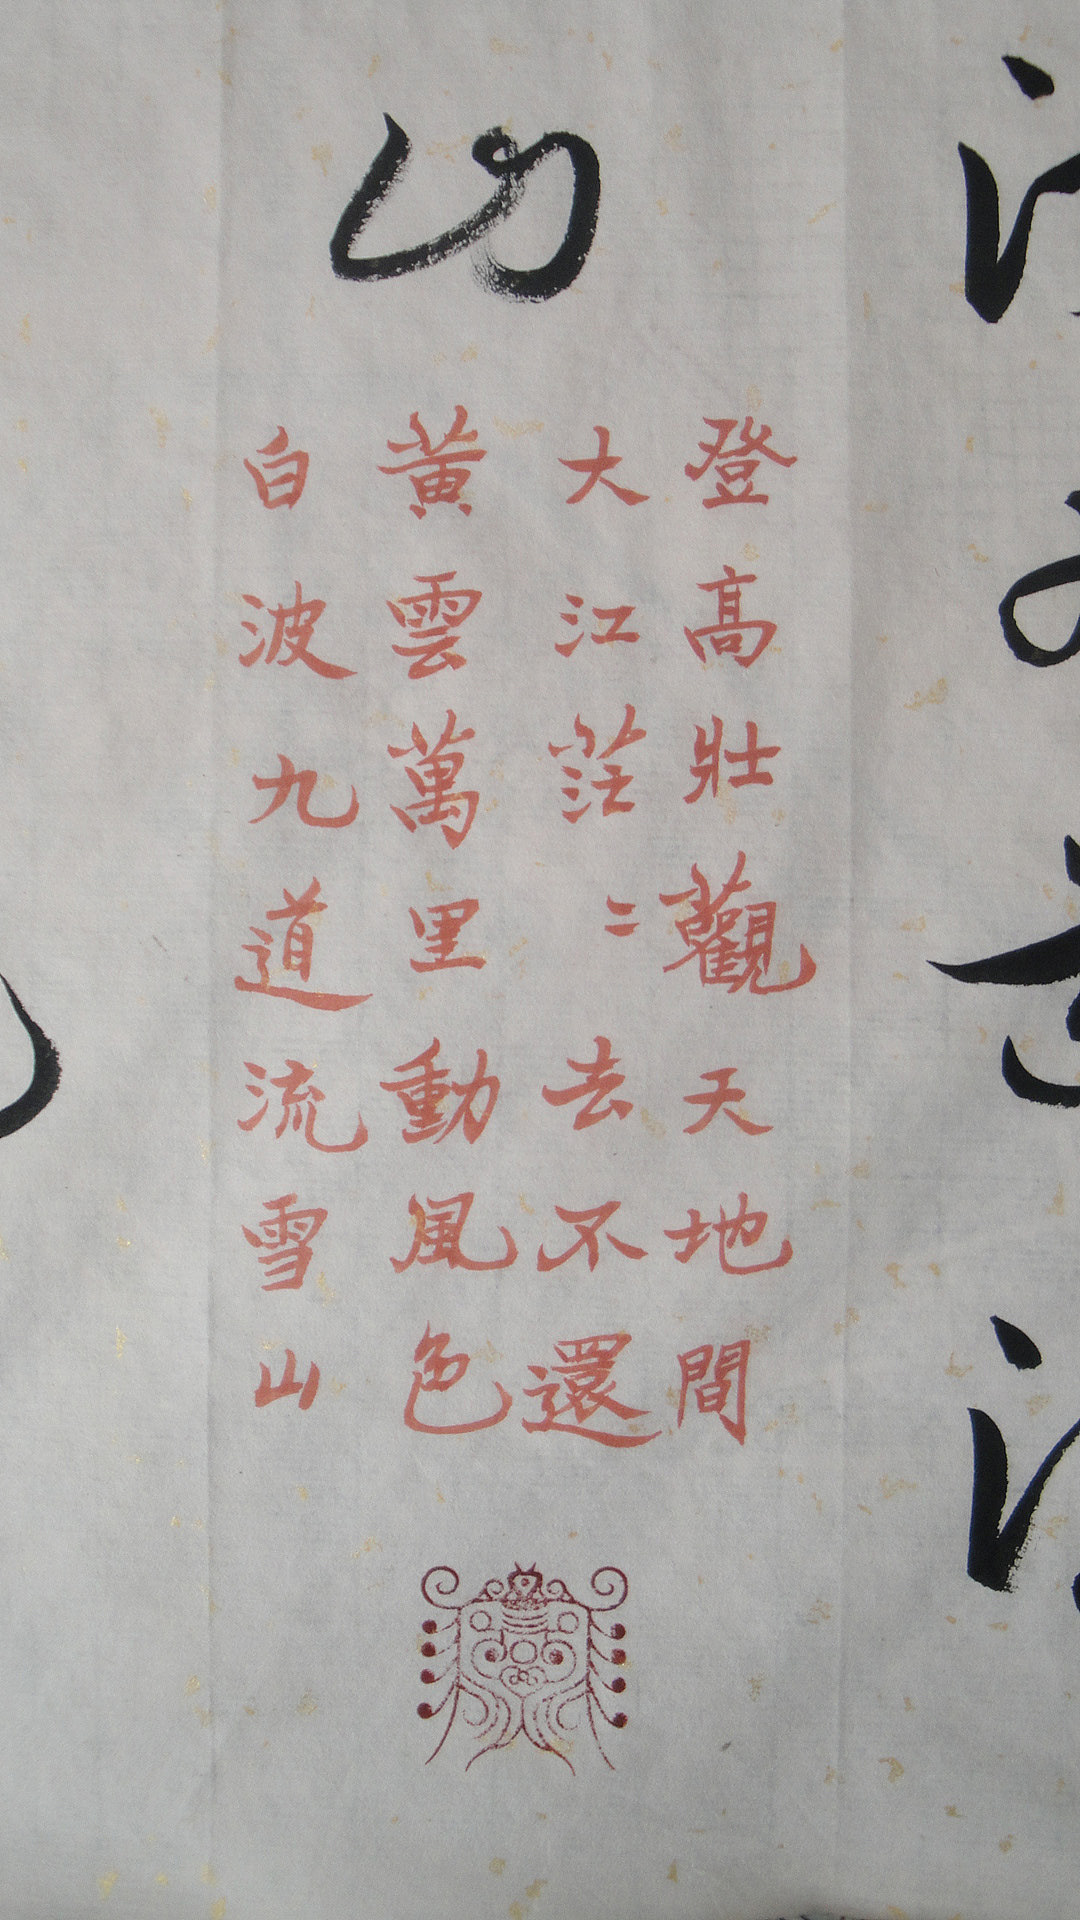 登高壯觀天地間
大江茫〻去不還
黃雲萬里動風色
白波九道流雪山
山